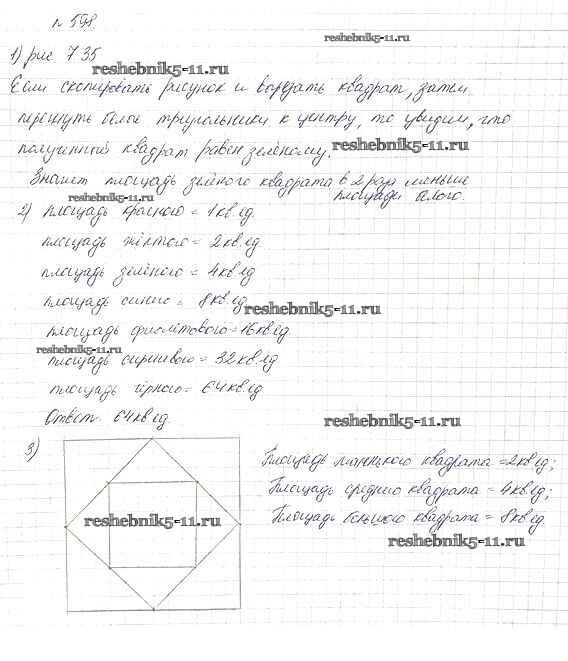 № 598.
reshebnik5-11.ru
1) рис 7.35
reshebnik5-11.ru
Если скопировать рисунок и вырезать квадрат, затем
перегнуть белые треугольники к центру, то увидим, что
полученный квадрат равен зелёному. reshebnik5-11.ru
Значит площадь зелёного квадрата в 2 раза меньше
площади белого.
reshebnik5-11.ru
2) площадь красного = 1 кв.ед.
площадь жёлтого = 2 кв.ед.
площадь зелёного = 4 кв.ед
площадь синего = 8 кв.ед
reshebnik5-11.ru
площадь фиолетового = 16 кв.ед
reshebnik5-11.ru
площадь сиреневого = 32 кв.ед
площадь чёрного = 64 кв.ед
Ответ: 64 кв.ед.
reshebnik5-11.ru
3)
Площадь маленького квадрата = 2 кв.ед;
Площадь среднего квадрата = 4 кв.ед;
Площадь большого квадрата = 8 кв.ед.
reshebnik5-11.ru
reshebnik5-11.ru